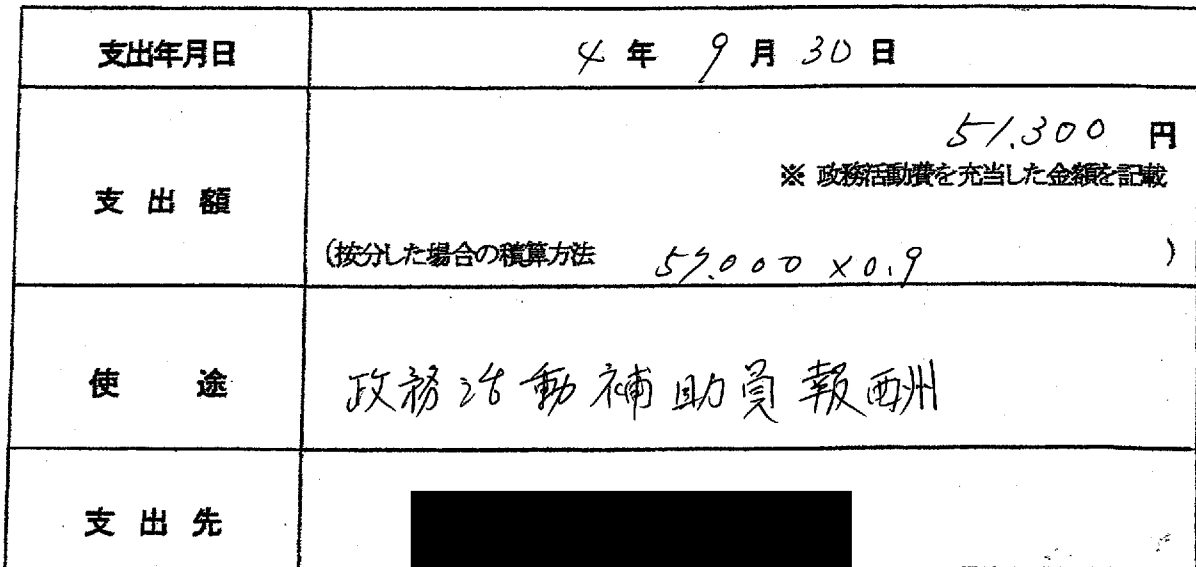 支出年月日 4年 9月 30日
51.300 円
※ 政務活動費を充当した金額を記載
支出額
(按分した場合の積算方法 57.000 ×0.9 )
使途 政務活動補助員報酬
支出先